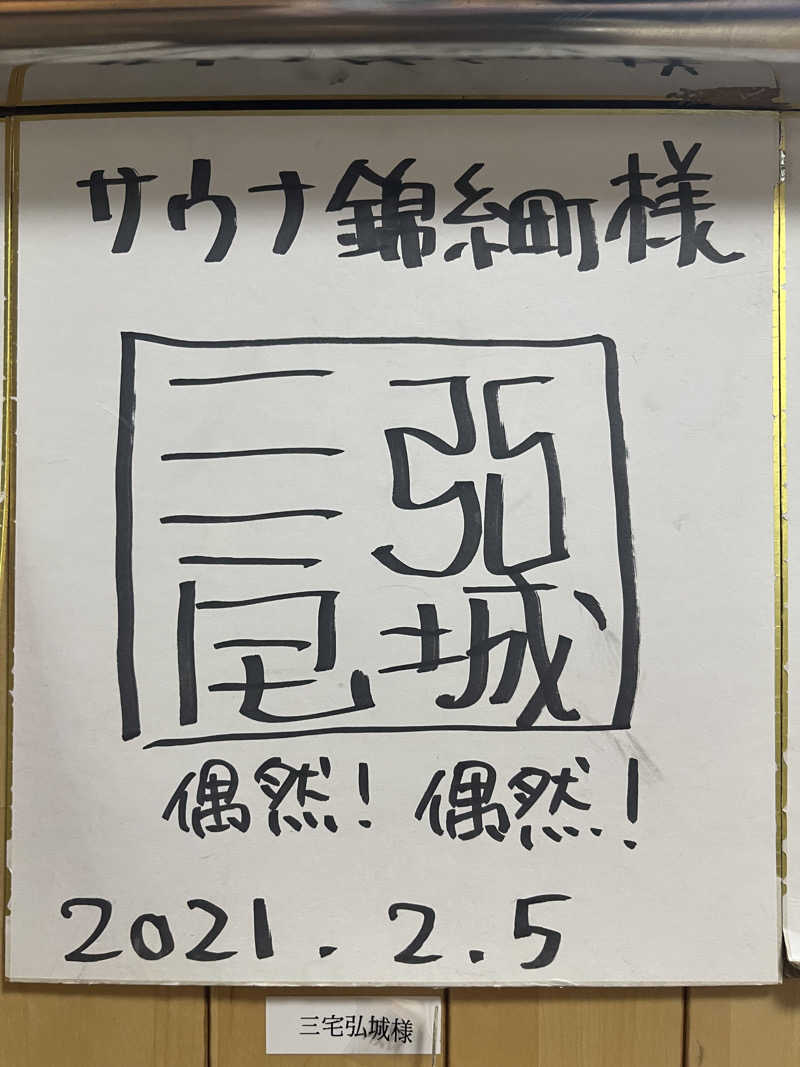 サウナ錦糸町様
三宅
弘城
偶然！偶然！
2021.2.5
三宅弘城様